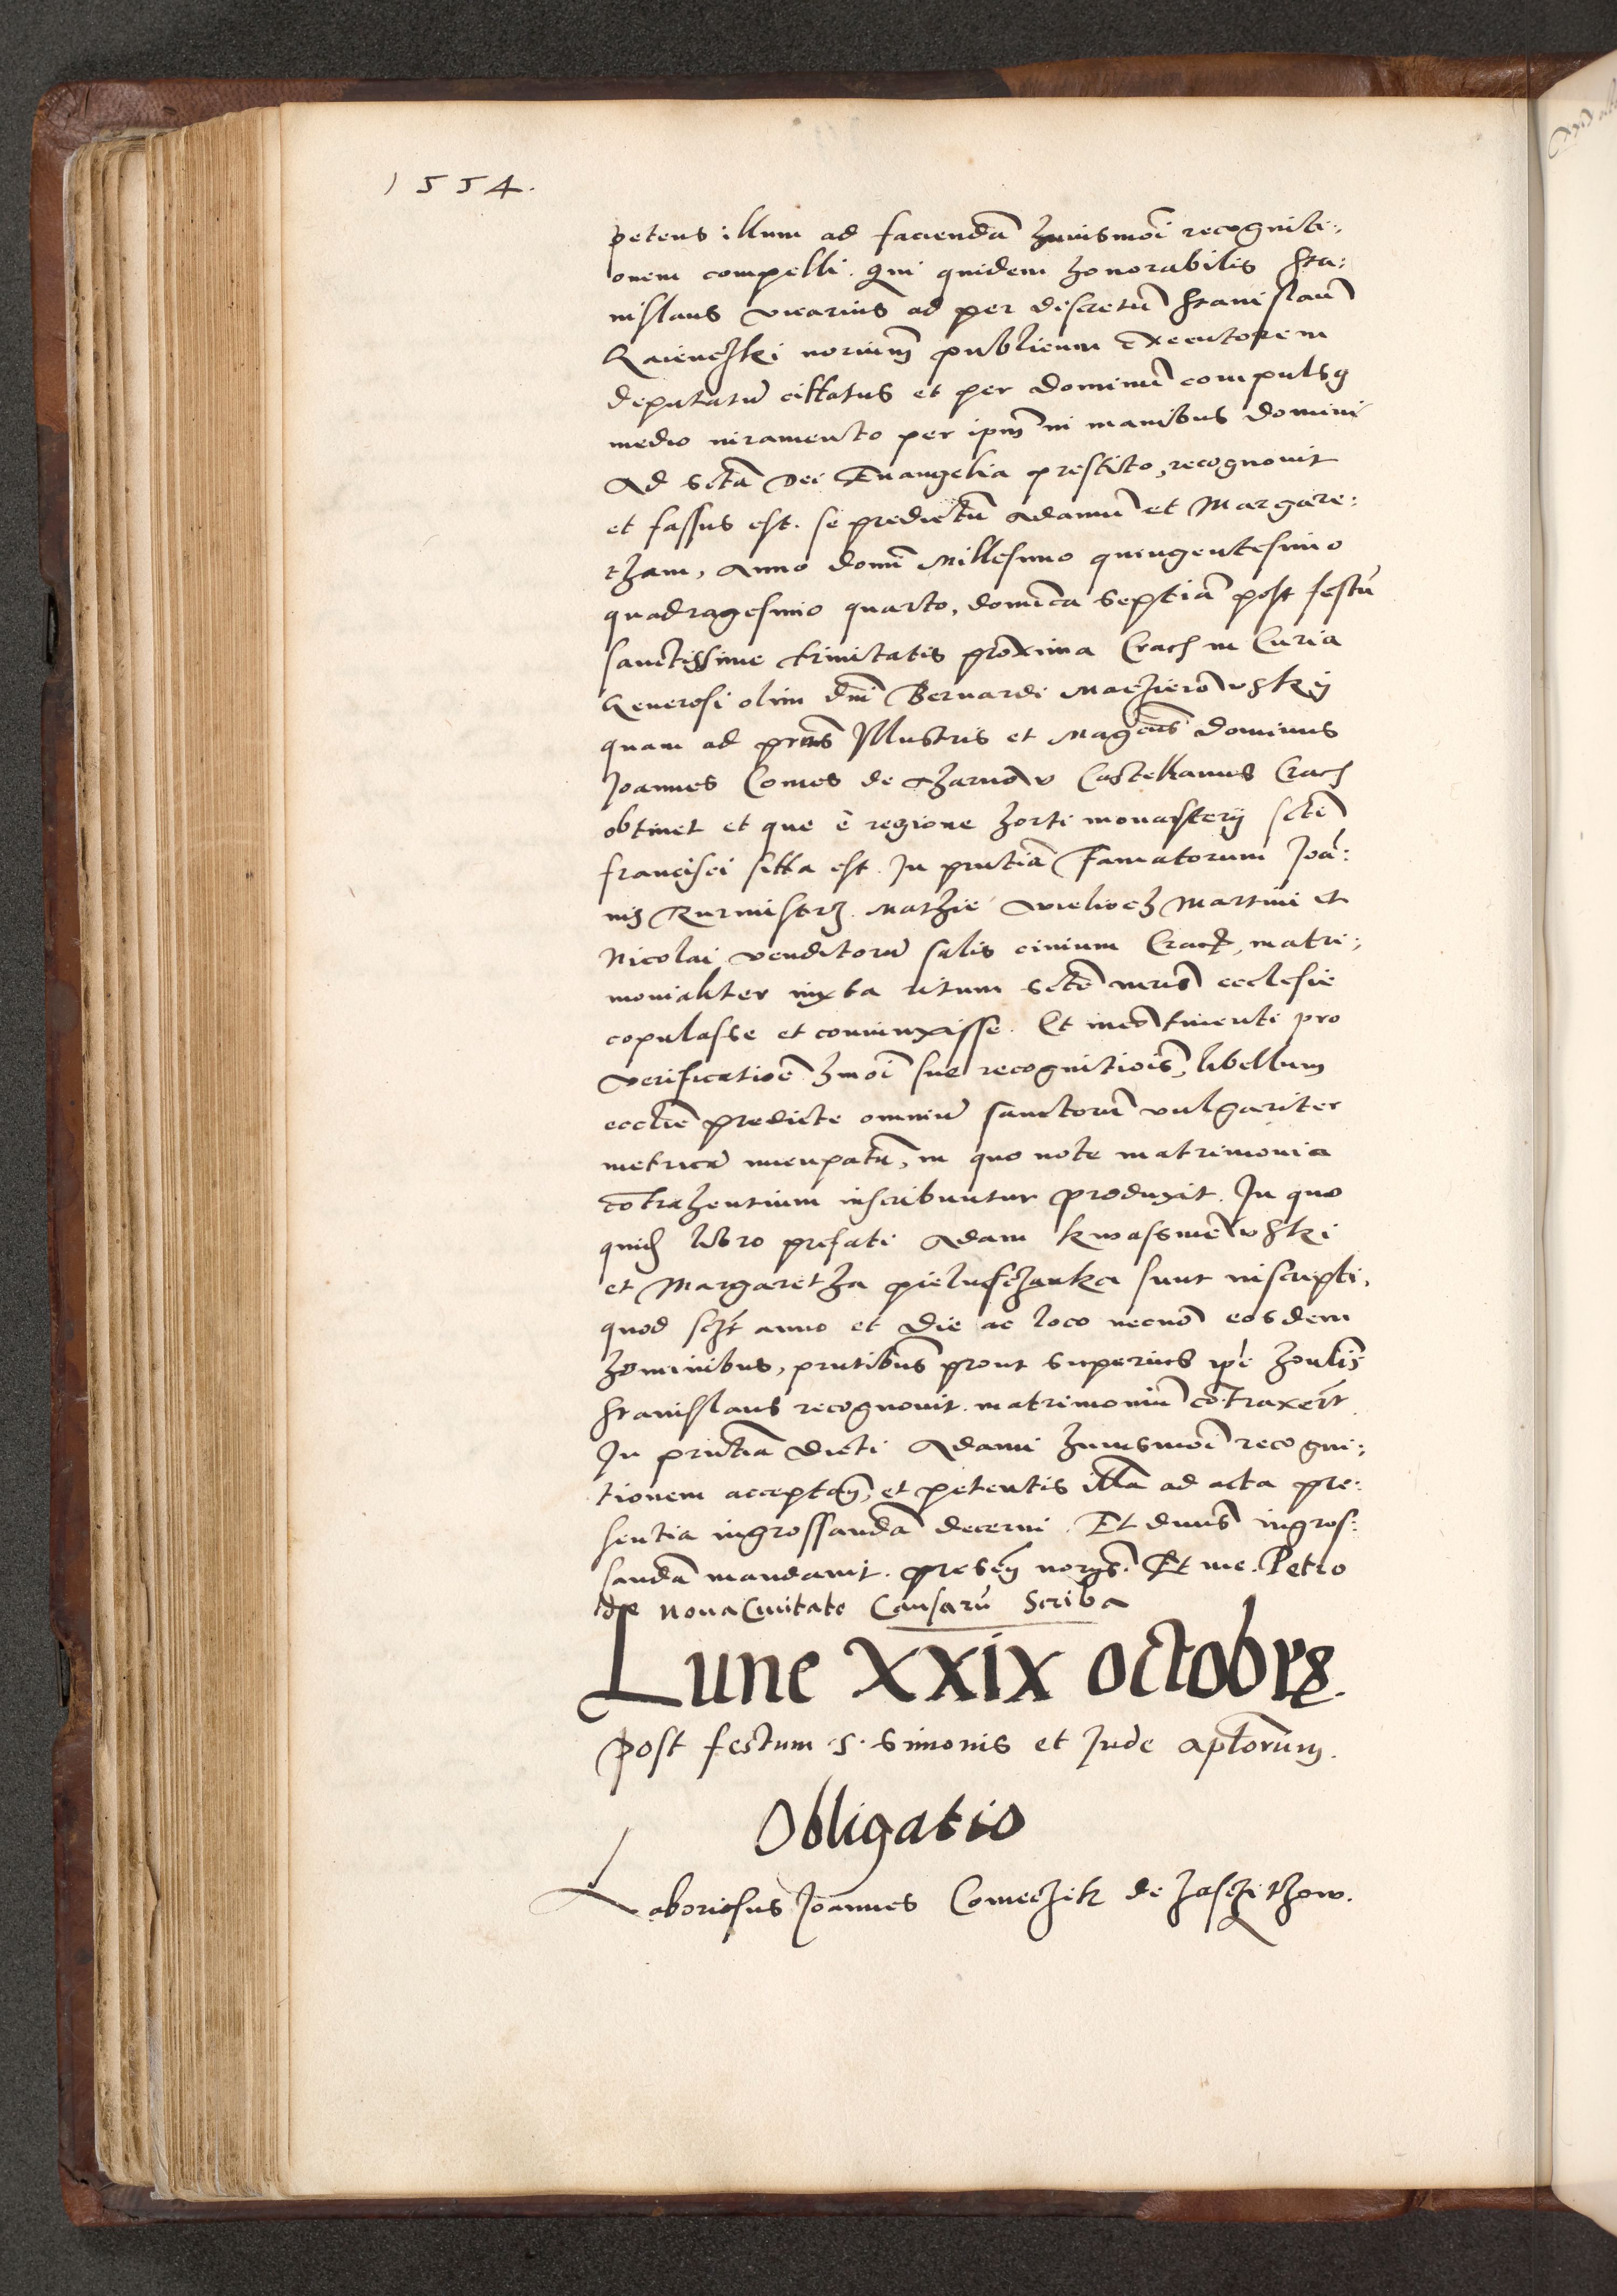 1554.
petens illum ad faciendã huiusmoi recogniti:
onem compelli. Qui quidem honorabilis Sta:
nislaus vicarius ad per discretũ Stanislaũ
publicum Executorem
deputatũ cittatus et per dominũ compulsq
medio iuramento per ipm̃ in manibus domini
Ad sctã Dei Euangelia prestito, recognouit
et fassus est. se predictũ Adamũ et Margare:
tham, Anno domĩ Millesimo quingentesimo
quadragesimo quarto, domĩca septiã post festũ
sanctissime trinitatis proxima Crach in Curia
Generosi olim dñi Bernardi Macziero͂wskÿ
quam ad prñs Illustris et Magcus dominus
Joannes Comes de Tharno͂w Castellanus Crach
obtinet et que ẽ regione horti monasterij scti
francisci sitta est. In prñtiã Famatorum Joã:
nis Burmistrz Mathie Wielioch Martini et
Nicolai venditorũ salis ciuium Crach, matri:
monialiter iuxta ritum scte ecclesie
copulasse et coniunxisse. Et inco͂tinenti pro
verificatioẽ hmoĩ sue recognitiois, libellum
eccliẽ predicte omniũ sanctorũ vulgariter
metricã nuncupatũ, in quo note matrimonia
co͂trahentium inscribuntur produxit. In quo
quidẽ libro prefati Adam kwassnie͂wski
et Margaretha pielusczanka sunt inscripti,
quod sczt anno et Die ac loco necno͂ eosdem
hominibus, prñtibus prout superius ipe honlis
Stanislaus recognouit. matrimoniũ co͂traxert
In prñtia Dicti Adami huiusmoi recogni:
tionem acceptan, et petentis illã ad acta pre:
sentia ingrossandã decerni. Et dnus ingros:
sandã mandauit. presẽ Et me. Petro
de Noua Ciuitate Causarũ Scriba
Lune XXIX octobrz.
post festum .S. Simonis et Jude aptorum.
Obligatio
Laboriosus Joannes Comeczik de Jasczithow.